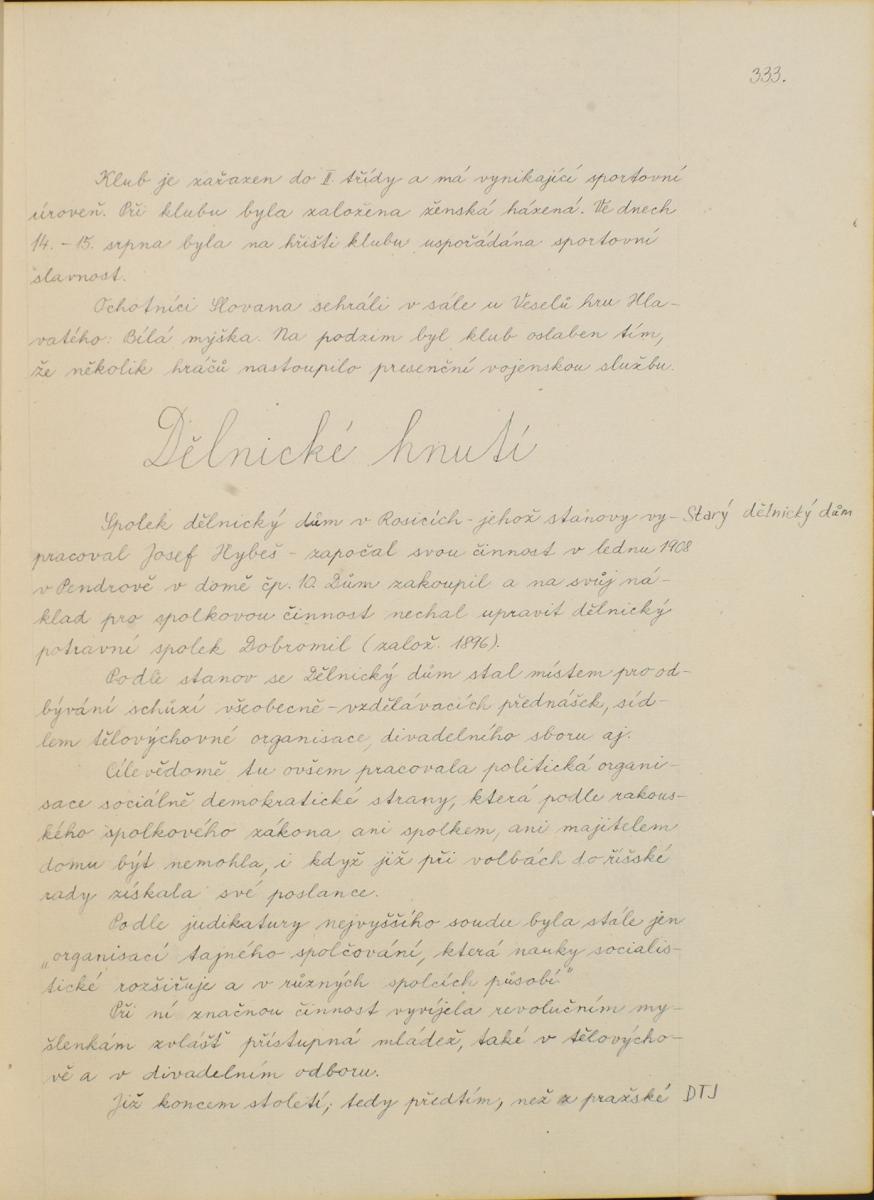 333.
Klub je zařazen do II. třídy a má vynikající sportovní
úroveň. Při klubu byla založena ženská házená. Ve dnech
14. - 15. srpna byla na hřišti klubu uspořádána sportovní
slavnost.
Ochotníci Slovana sehráli v sále u Veselů hru Hla-
vatého: Bílá myška. Na podzim byl klub oslaben tím,
že několik hráčů nastoupilo presenční vojenskou službu.
Dělnické hnutí
Spolek dělnický dům v Rosicích - jehož stanovy vy- Starý dělnický dům
pracoval Josef Hybeš - započal svou činnost v lednu 1908
v Pendrově v domě čp. 10. Dům zakoupil a na svůj ná-
klad pro spolkovou činnost nechal upravit dělnický
potravní spolek Dobromil (založ. 1896).
Podle stanov se Dělnický dům stal místem pro od-
bývání schůzí všeobecně - vzdělávacích přednášek, síd-
lem tělovýchovné organisace, divadelního sboru aj.
Cílevědomě tu ovšem pracovala politická organi-
sace sociálně demokratické strany, která podle rakous-
kého spolkového zákona ani spolkem, ani majitelem
domu být nemohla, i když již při volbách do říšské
rady získala své poslance.
Podle judikatury nejvyššího soudu byla stále jen
„organisací tajného spolčování, která nauky socialis-
tické rozšiřuje a v různých spolcích působí."
Při ní značnou činnost vyvíjela revolučním my-
šlenkám zvlášť přístupná mládež, také v tělovýcho-
vě a v divadelním odboru.
Již koncem století, tedy předtím, než z pražské DTJ